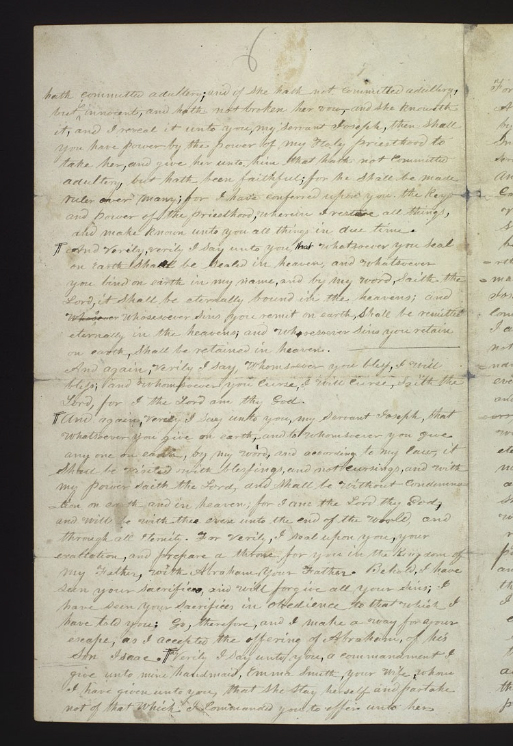 6
hath committed adultery; and if she hath not committed adultery,
but is innocent, and hath not broken her vow, and she knoweth
it, and I reveal it unto you, my servant Joseph, then shall
you have power, by the power of my Holy priesthood to
take her, and give her unto him that hath not committed
adultery, but hath been faithful; for he shall be made
ruler over many; for I have conferred upon you the keys
and power of the priesthood, wherein I restore all things,
and make known unto you all things in due time.
¶ And verily, verily I say unto you, that whatsoever you seal
on earth shall be sealed in heaven, and whatsoever
you bind on earth in my name, and by my word, saith the
Lord, it shall be eternally bound in the heavens; and
whosoever sins you remit on earth, shall be remitted
eternally in the heavens; and whosoever sins you retain
on earth, shall be retained in heaven.
And again, verily I say, whomsoever you bless, I will
bless; and whomsoever you curse, I will curse, saith the
Lord, for I the Lord am thy God.
¶ And again, verily I say unto you, my servant Joseph, that
whatsoever you give on earth, and to whomsoever you give
any one on earth, by my word, and according to my law, it
shall be visited with blessings, and not cursings, and with
my power saith the Lord, and shall be without condemna-
-tion on earth and in heaven; for I am the Lord thy God,
and will be with thee even unto the end of the world, and
through all Eternity. For verily, I seal upon you, your
exaltation, and prepare a throne for you in the kingdom of
my Father, with Abraham, your Father. Behold, I have
seen your sacrifices, and will forgive all your sins; I
have seen your sacrifices in obedience to that which I
have told you; Go, therefore, and I make a way for your
escape, as I accepted the offering of Abraham, of his
son Isaac. ¶ Verily I say unto you, a commandment I
give unto mine handmaid, Emma Smith, your wife, whom
I have given unto you, that she stay herself and partake
not of that which I commanded you to offer unto her